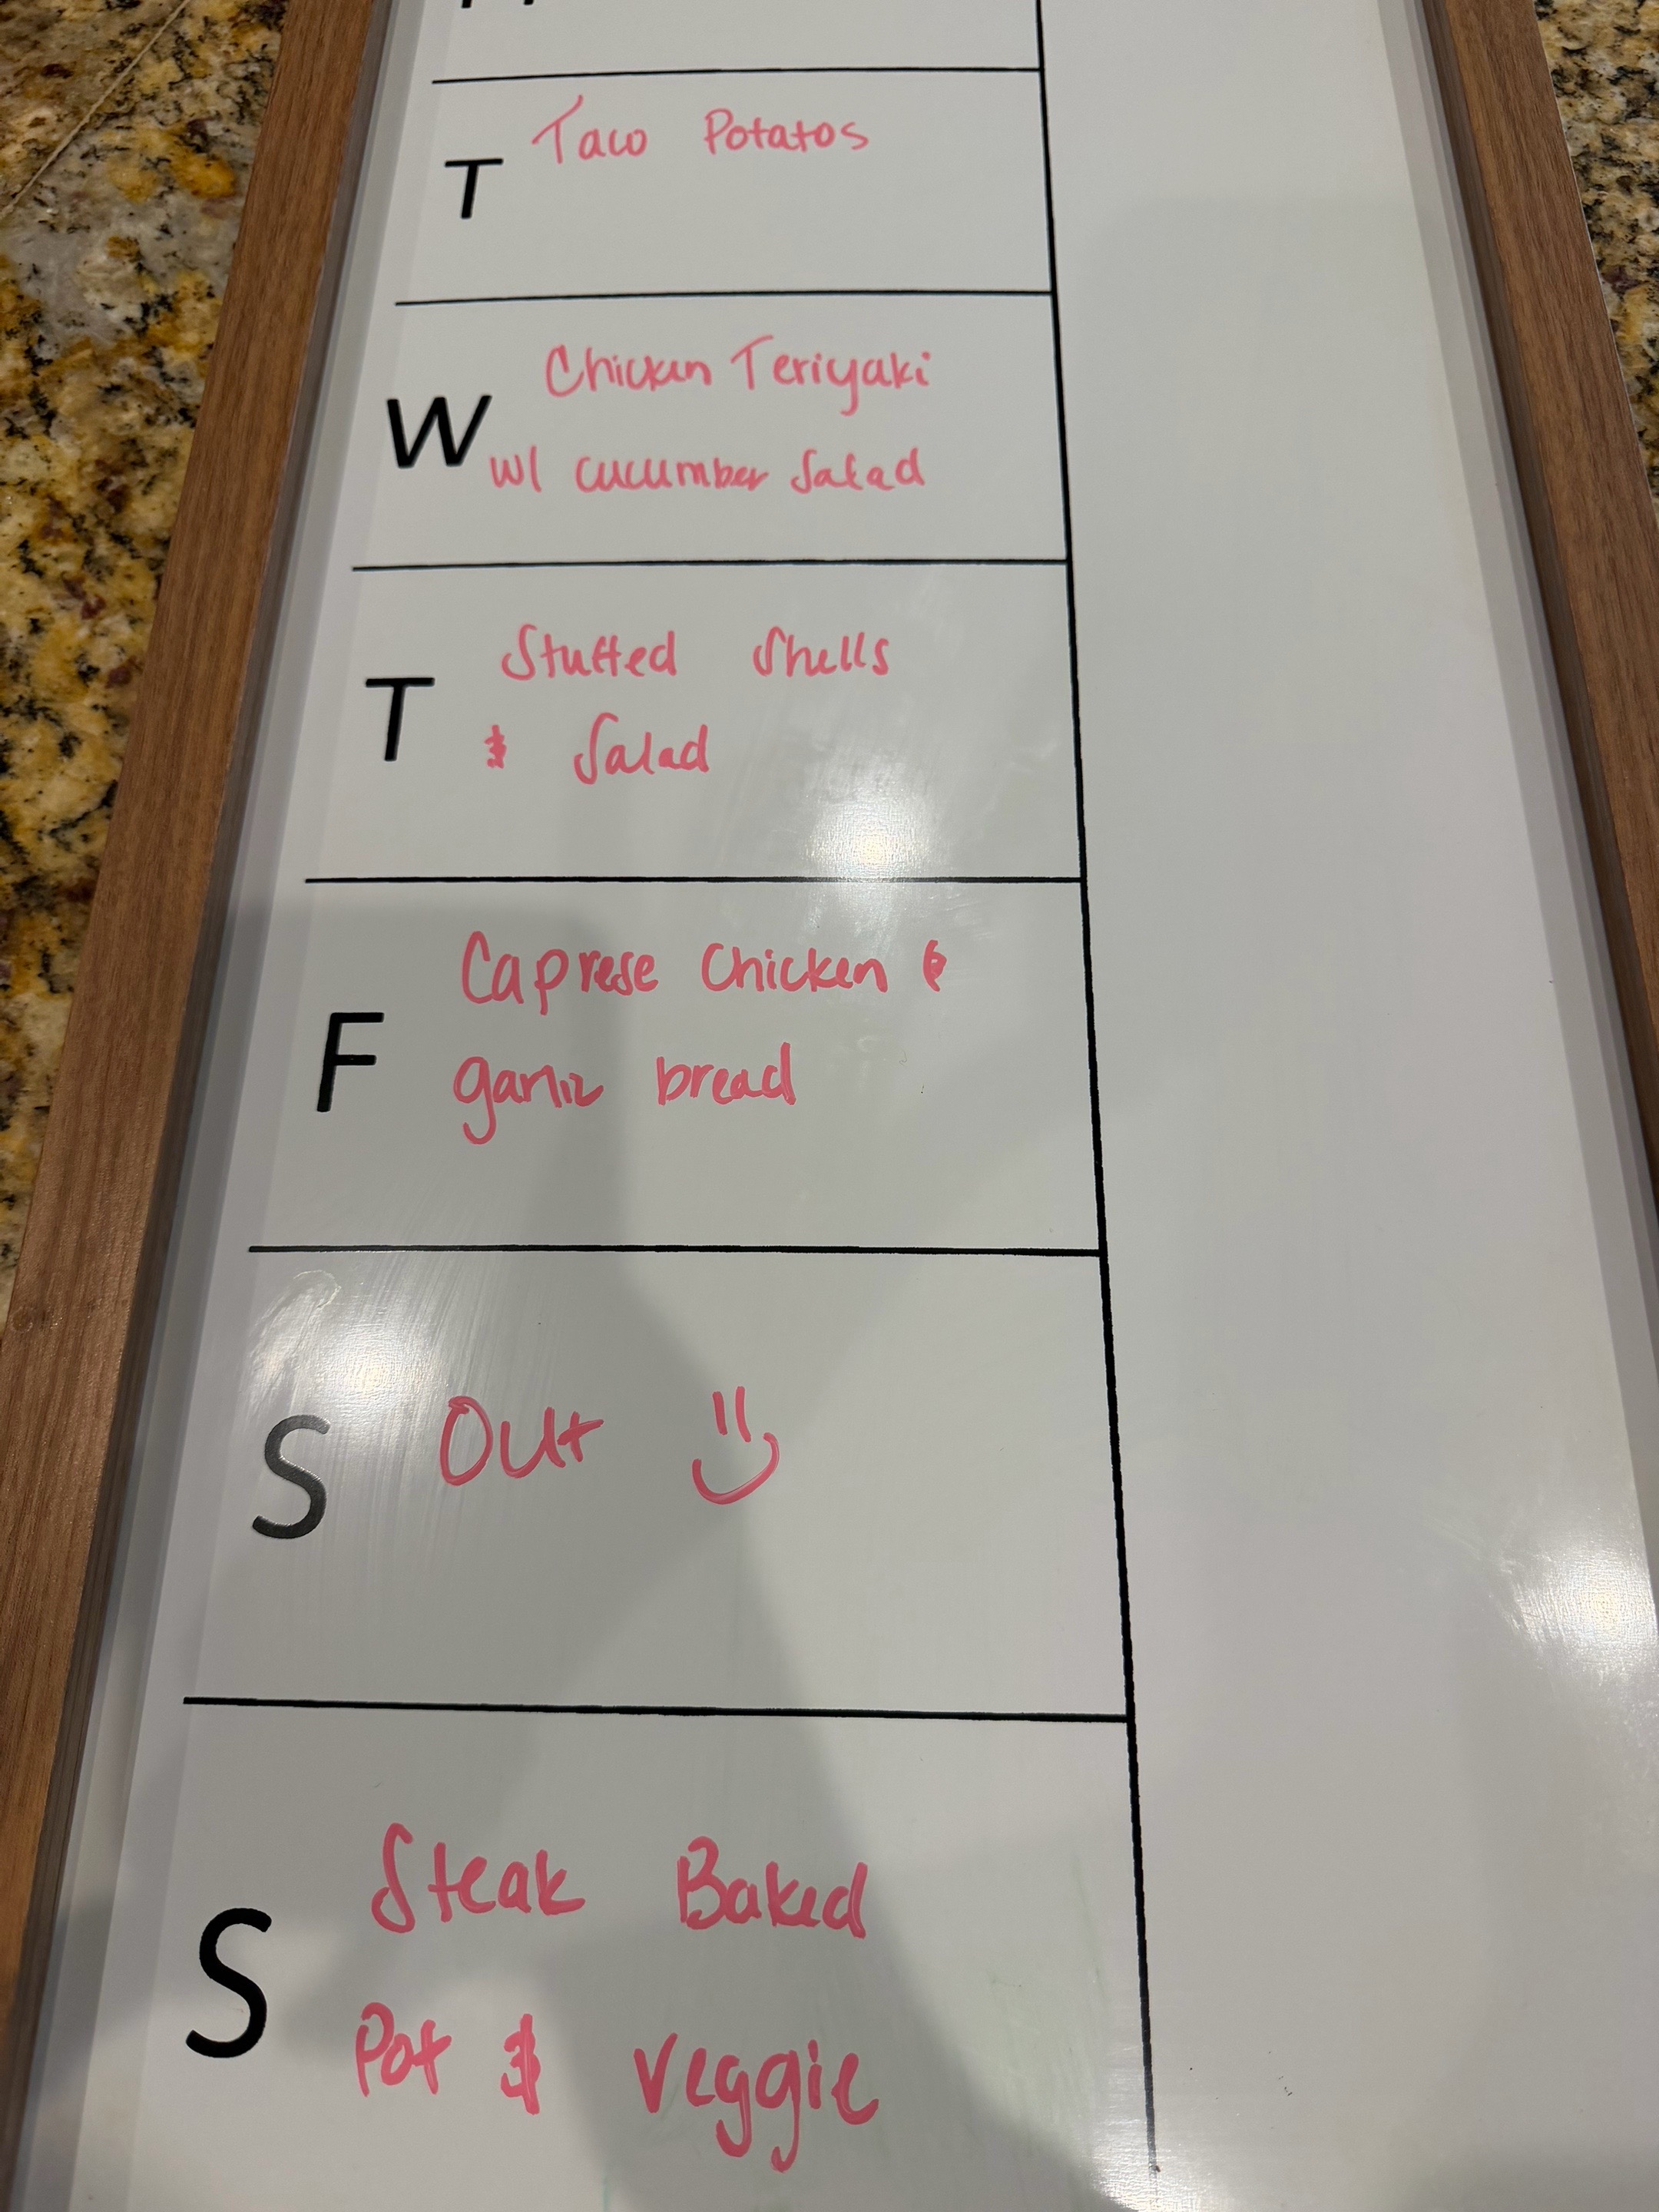 Taco Potatos
T
Chicken Teriyaki
W w/ cucumber Salad
Stuffed Shells
T & Salad
Caprese Chicken &
F garlic bread
S Out
Steak Baked
S
Pot & Veggie